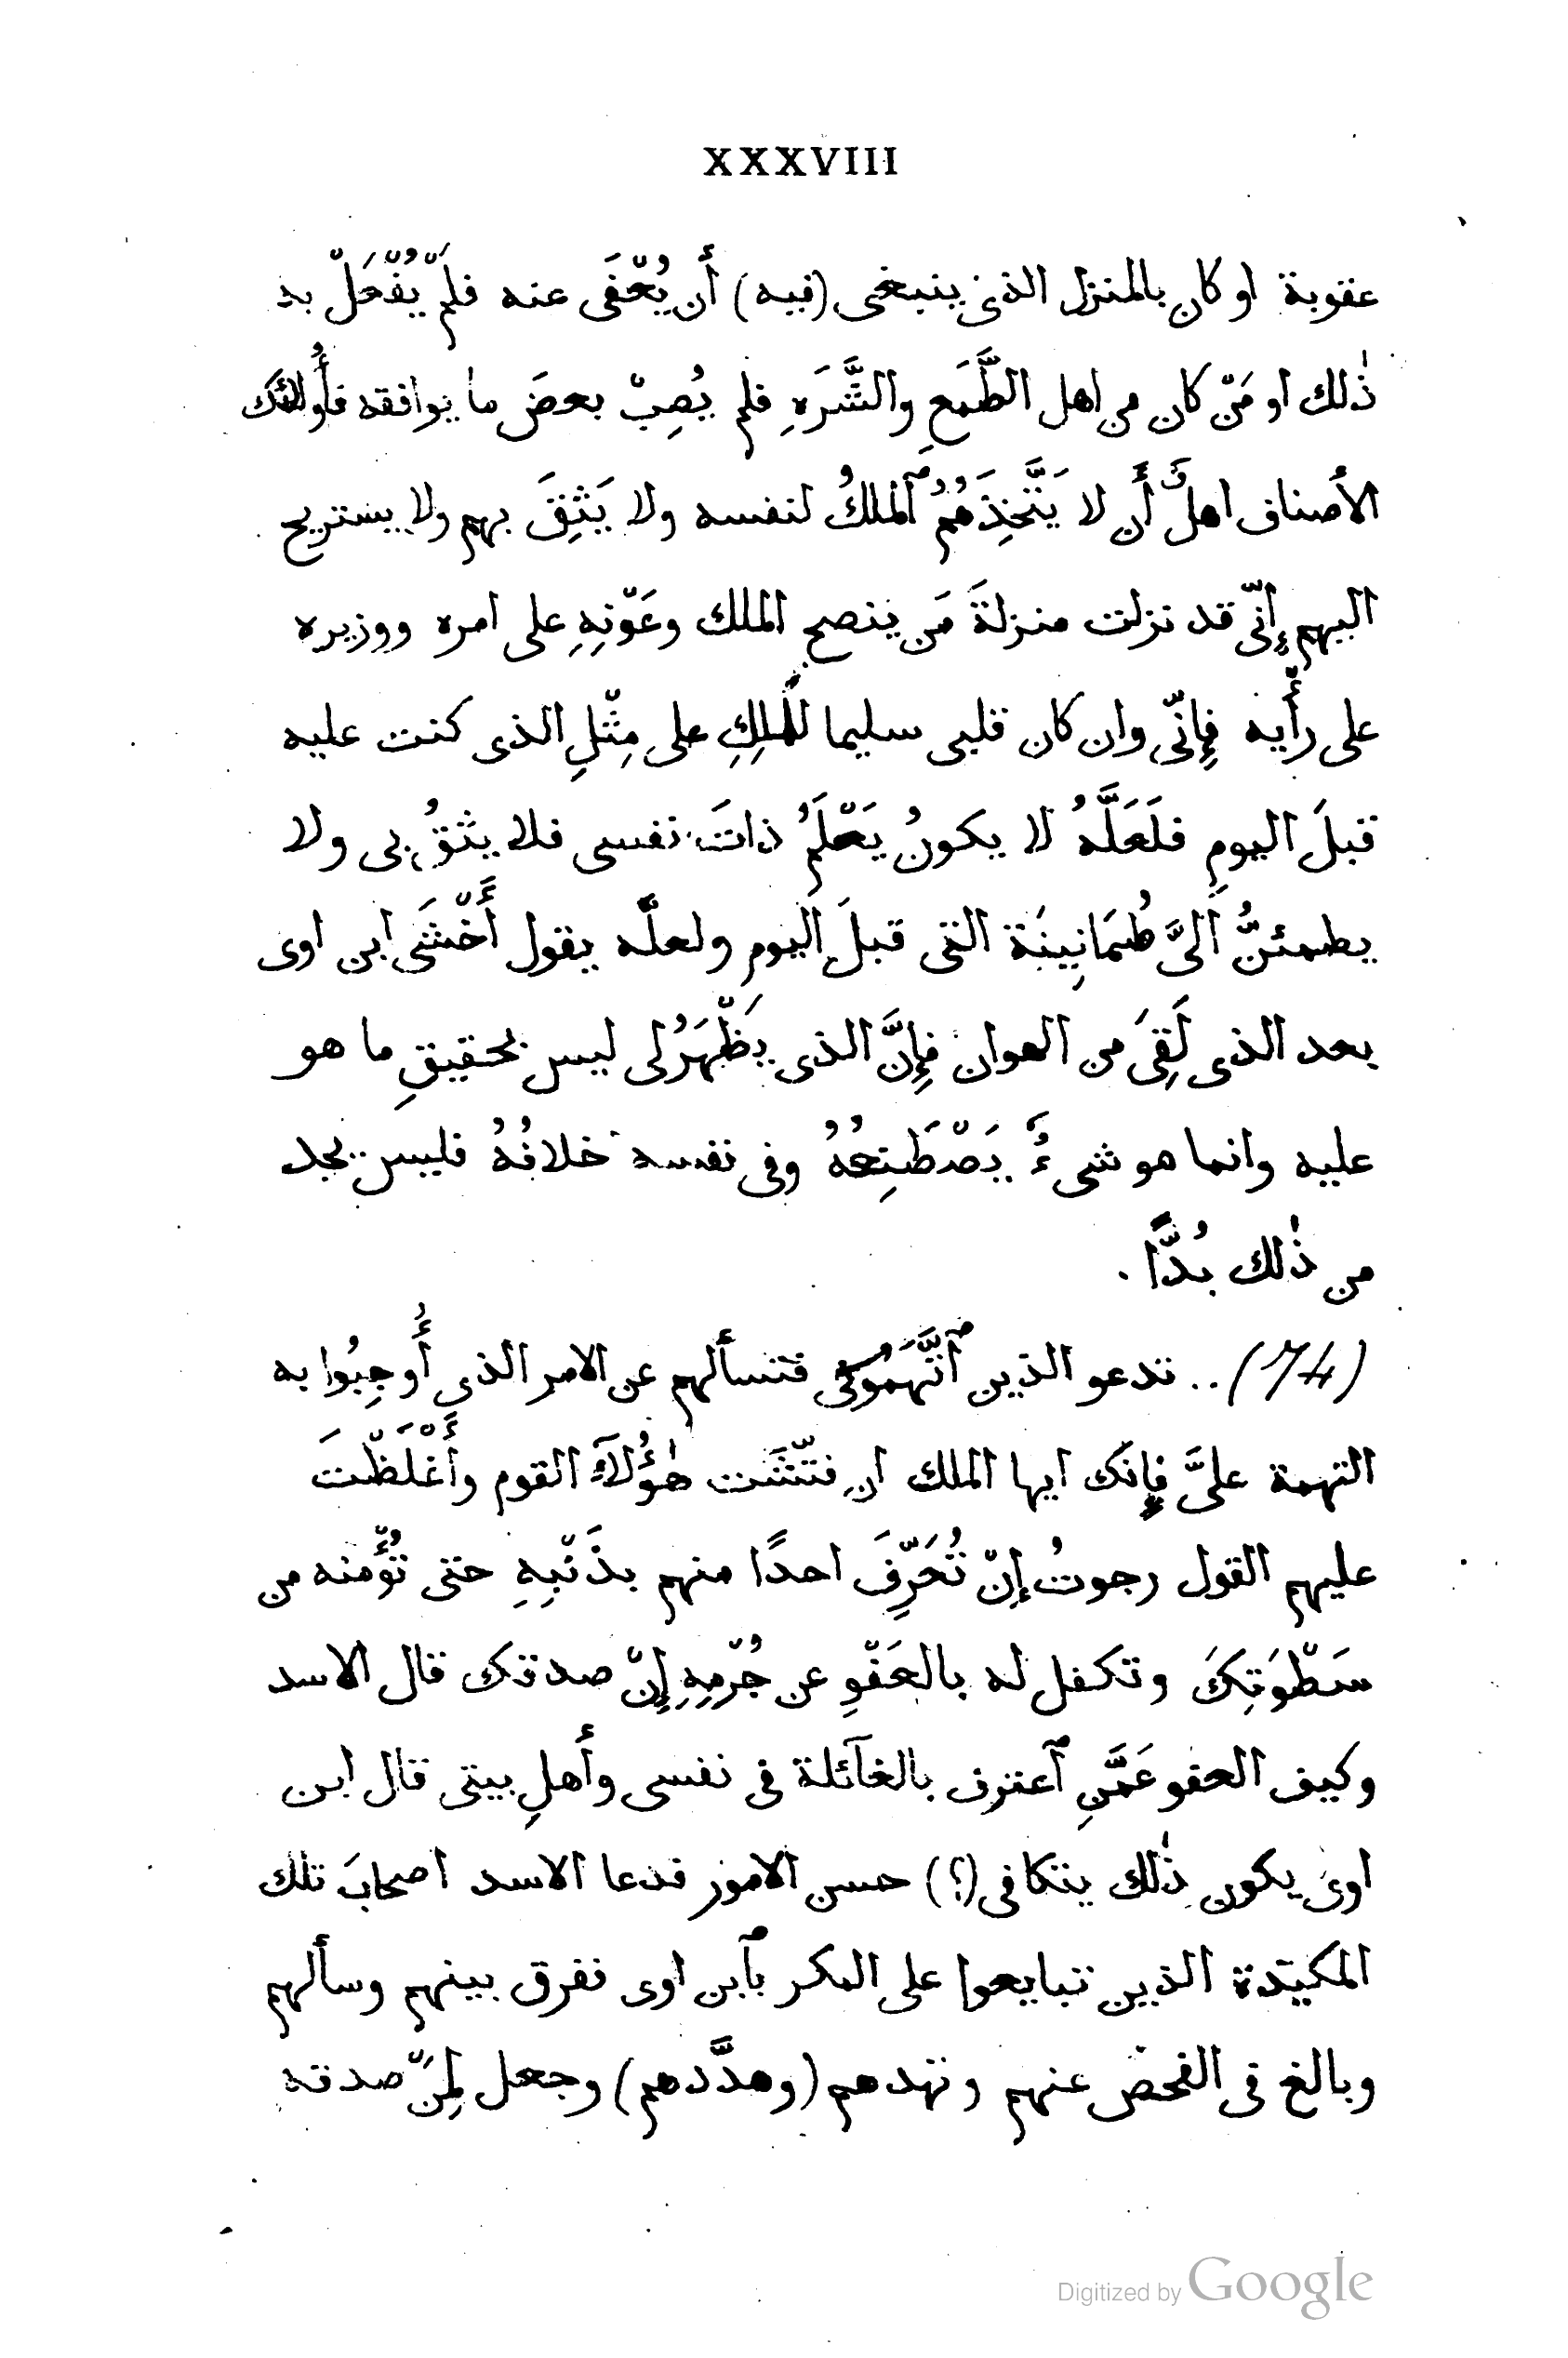 XXXVIII
عقوبة او كان بالمنزل الذى ينبغى (فيه) أَن يُعْفَى عنه فلَمْ يُفْعَلْ به
ذٰلك او مَنْ كان من اهل الطَّمَعِ والشَّرَهِ فلم يُصِبْ بعضَ ما يوافقه فأُولائك
الأصناف اهلٌ أَن لا يَتَّخِذَهُمُ ٱلملكُ لنفسه ولا يَثِقَ بهم ولا يستريح
اليهم إِنّى قد نزلت منزلةَ مَن ينصح الملك وعَوْنِهِ على امره ووزيره
على رأْيه فإِنّى وان كان قلبى سليما للمَلِكِ على مِثْلِ الذى كنت عليه
قبلَ اليومِ فلَعَلَّهُ لا يكونُ يَعْلَمُ ذاتَ نفسى فلا يثقُ بى ولا
يطمئنُّ الىَّ طُمَانِينَة التى قبلَ اليومِ ولعلّه يقول أَخْشَى ابن اوى
بعد الذى لَقِىَ من الهوان فإِنَّ الذى يَظْهَرُ لى ليس بحقيقِ ما هو
عليه وانما هو شىءٌ يَصْطَنِعُهُ وفى نفسه خلافُهُ فليس يجد
من ذٰلك بُدًّا .
(74) .. تدعو الذين ٱتَّهَمُونى فتسألهم عن الامر الذى أُوجِبُوا به
التهمة علىَّ فإِنك ايها الملك ان فتّشَت هٰؤُلآءِ القوم وأَغْلَظْتَ
عليهم القول رجوتُ إِنْ تُعَرِّفَ احدًا منهم بذَنْبِهِ حتى تُؤْمنه من
سَطْوَتِكَ وتكفل له بالعَفْوِ عن جُرْمِهِ إِنْ صدقك قال الاسد
وكيف العفو عَمَّنِ ٱعترف بالغآئلة فى نفسى وأَهلِ بيتى قال ابن
اوى يكون ذٰلك يتكافى (؟) حسن الامور فدعا الاسد اصحابَ تلك
المكيدة الذين تبايعوا على المكر بٱبن اوى ففرق بينهم وسألهم
وبالغ فى الفحص عنهم وتهدهم (وهدَّدهم) وجعل لِمَنْ صدقه
Digitized by Google